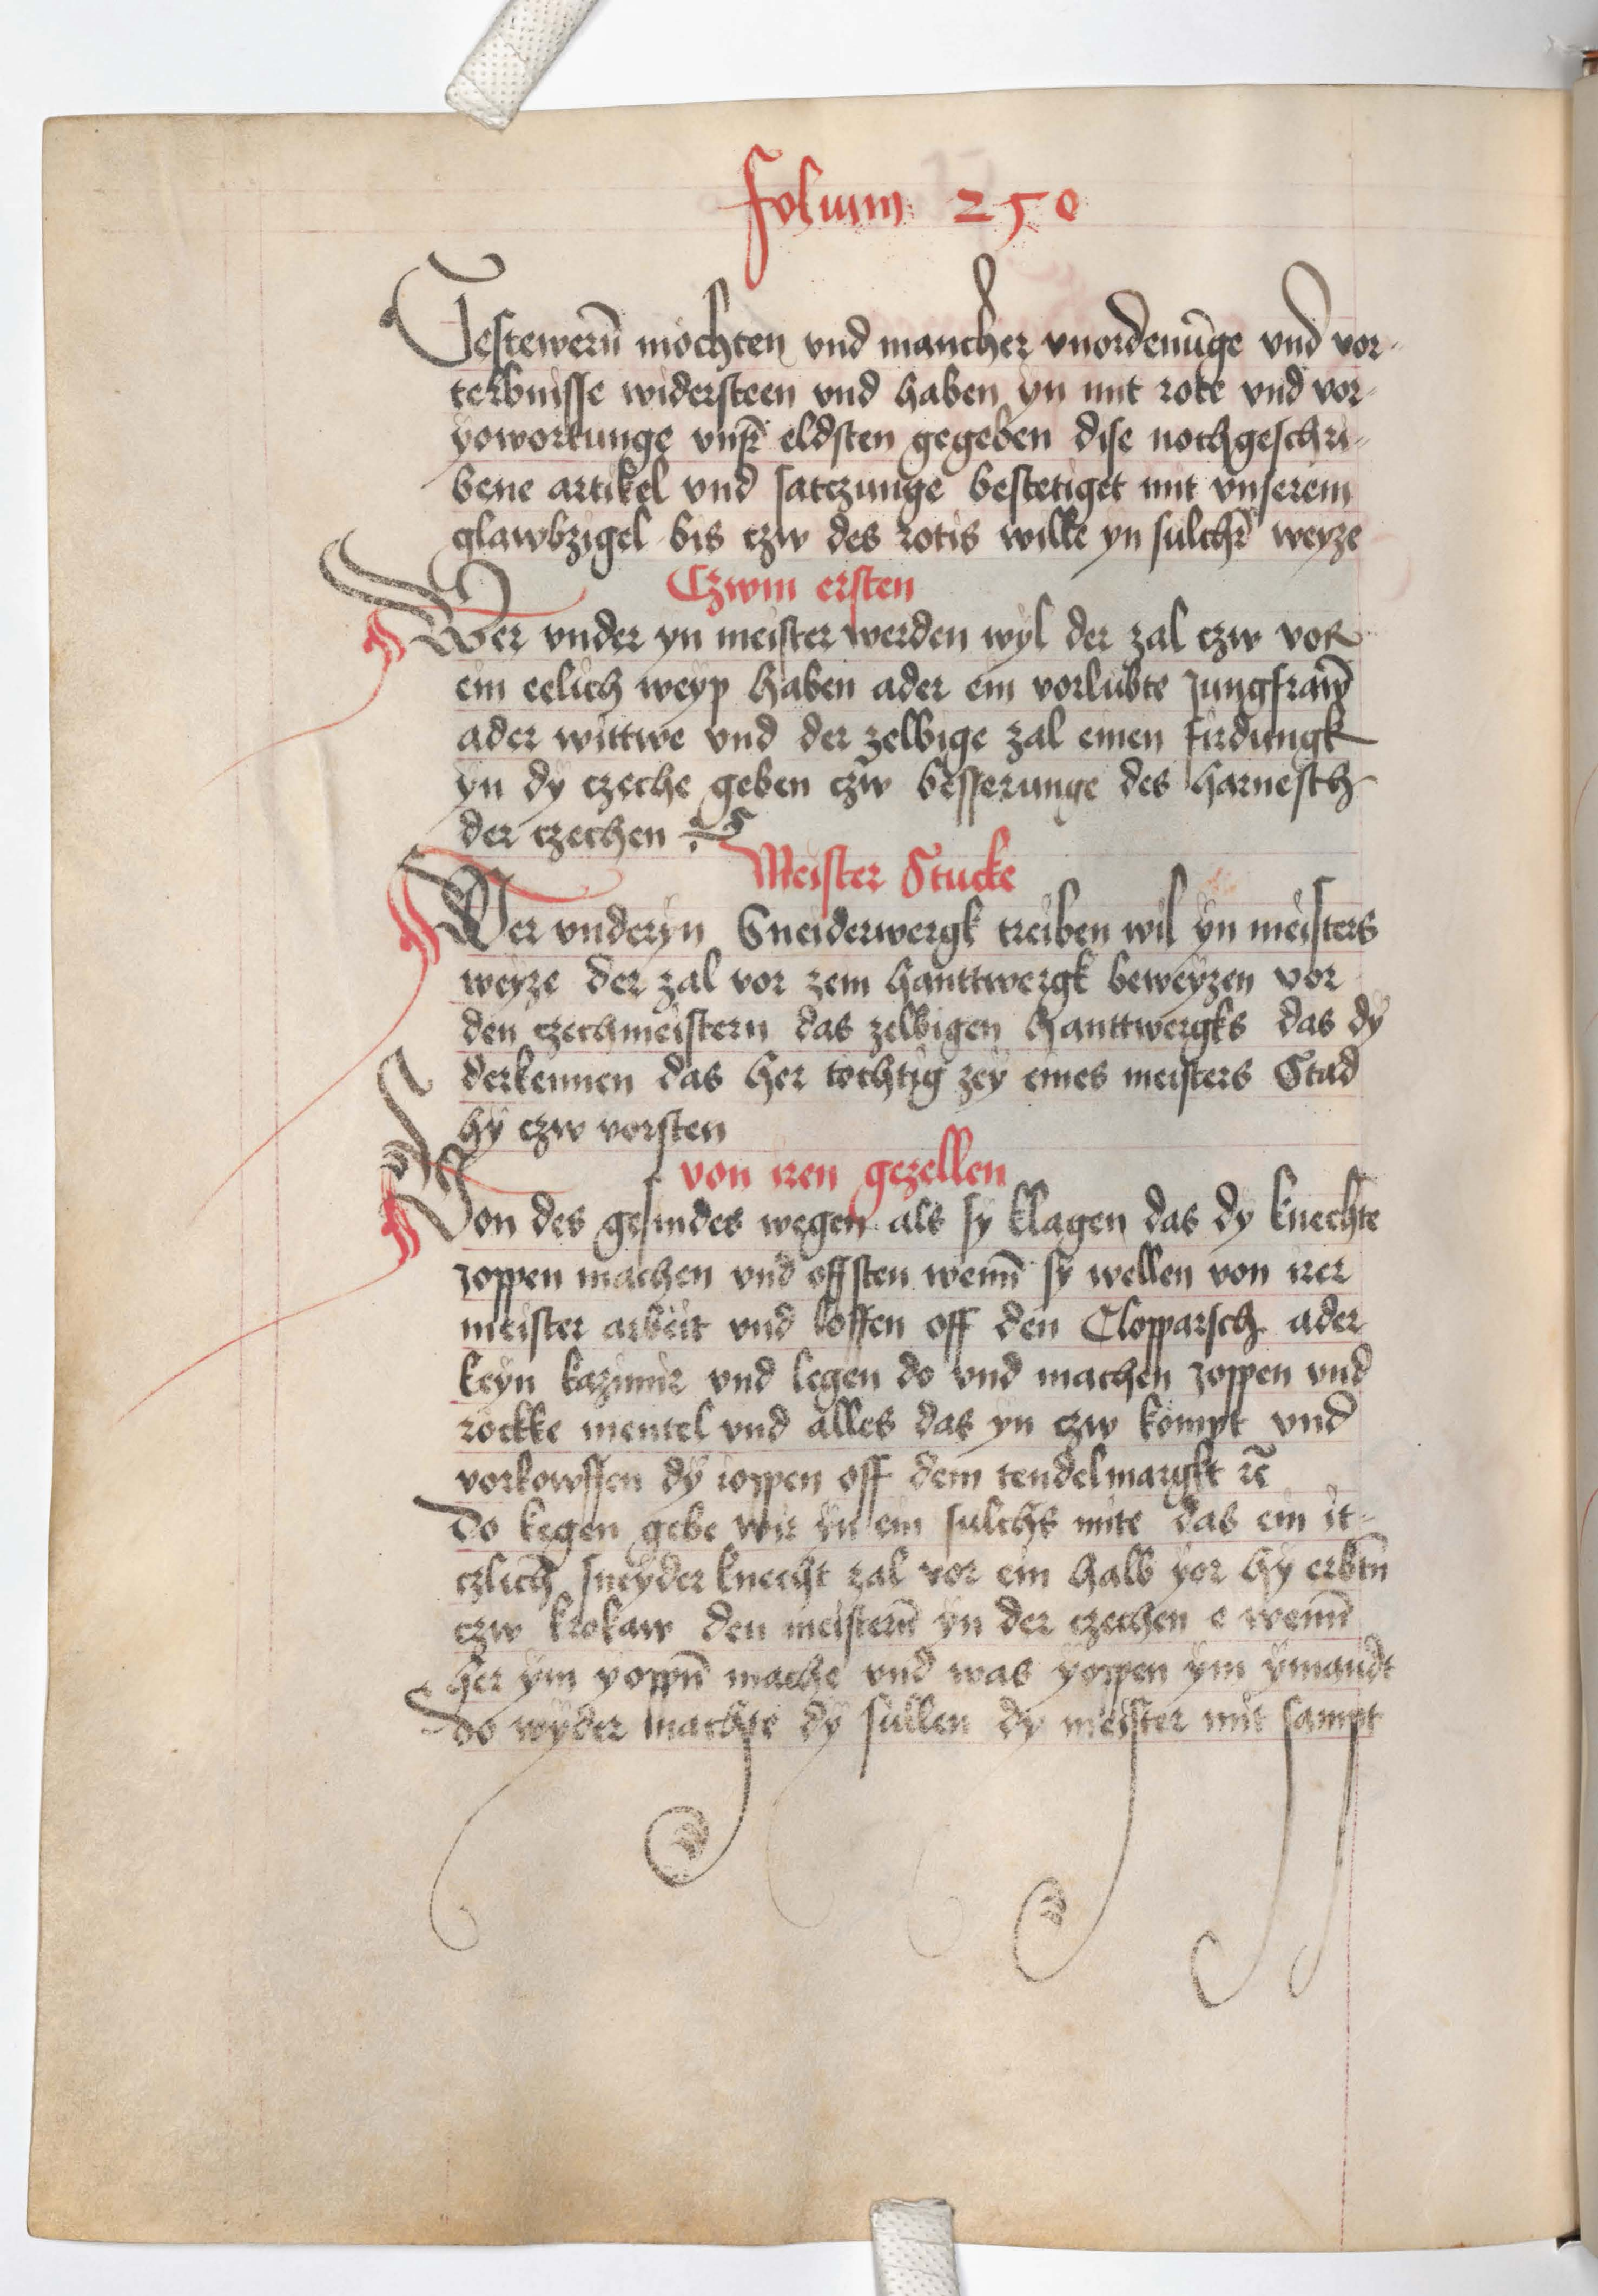 folium 250
Gestewerñ mochten vnd mancher vnordenũge vnd vor-
terbnisse widersteen vnd haben yn mit rote vnd vor-
yowortunge vnsr̃ eldsten gegeben dise nochgeschri-
bene artikel vnd satczunge bestetiget mit vnserem
glawbzigel bis czw des rotis wille yn sulchr̃ weyze
Czwm ersten
Wer vnder yn meister werden wyl der zal czw vor
ein eelich weyp haben ader ein vorlubte Jungfraw̃
ader wittwe vnd der zelbige zal einen firdungk
yn dy czeche geben czw besserunge des harnesch
der czechen
Meister Stucke
Wer vnderyn Sneiderwergk treiben wil yn meisters
weyze der zal vor zein hanttwergk beweyzen vor
den czechmeistern das zelbigen hanttwergks das dy
derkennen das her tochtig zey eines meisters Stad
hy czw vorsten
von iren gezellen
Von des gesindes wegen als sy klagen das dy knechte
Joppen machen vnd offsten wenñ sy wellen von irer
meister arbeit vnd loffen off den Clopparsch ader
keyn kazimir vnd legen do vnd machen Joppen vnd
rockke mentel vnd alles das yn czw kompt vnd
vorkowffen dy ioppen off dem tendelmargkt rc̃
Do kegen gebe wir yn ein sulchs mite das ein it-
czlich̃ sneyder knecht zal vor ein halb yor hy erbtñ
czw krokaw den meisterñ yn der czechen e wenñ
her ym yoppñ mache vnd was yoppen ym ymandt
do wyder machte dy sullen dy meister mit sampt